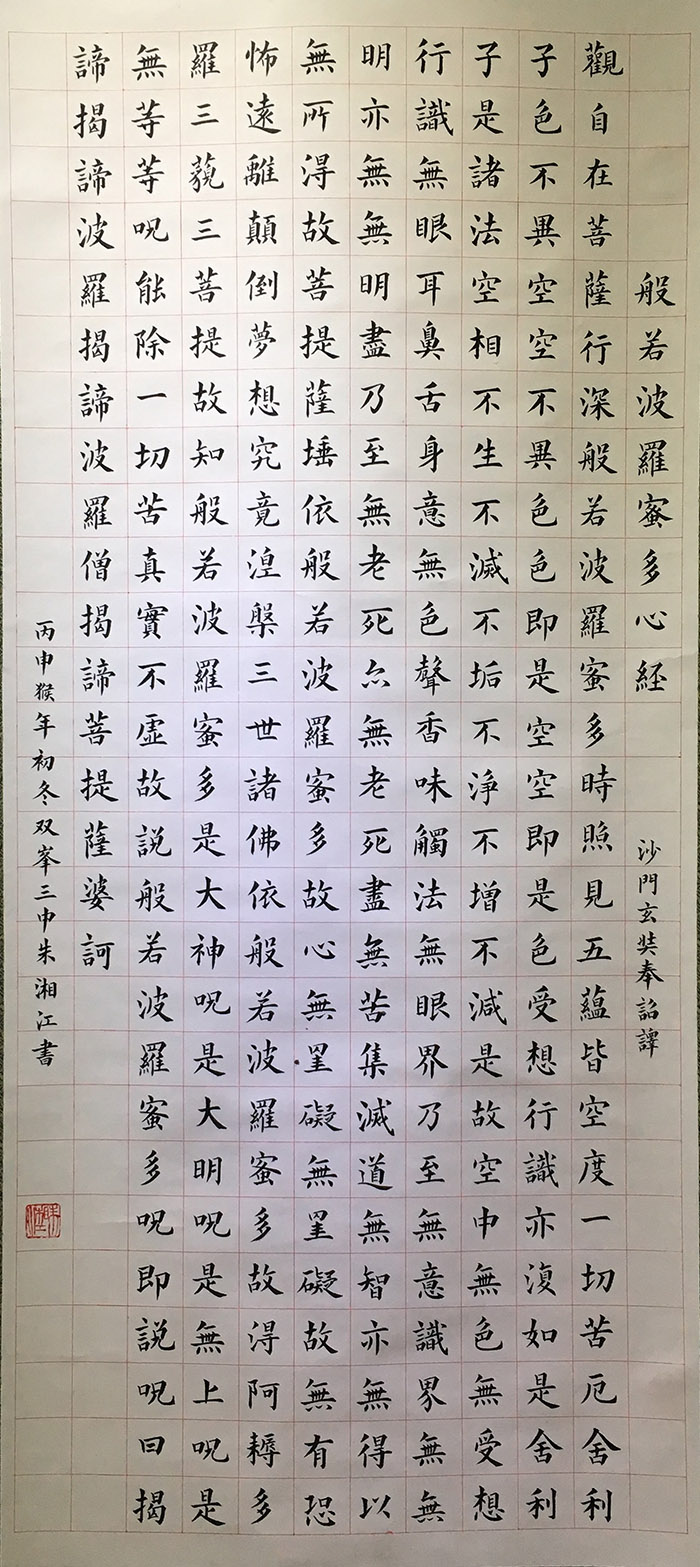 般若波羅蜜多心経
沙門玄奘奉詔譯
觀自在菩薩行深般若波羅蜜多時照見五蘊皆空度一切苦厄舍利
子色不異空空不異色色即是空空即是色受想行識亦復如是舍利
子是諸法空相不生不滅不垢不淨不增不減是故空中無色無受想
行識無眼耳鼻舌身意無色聲香味觸法無眼界乃至無意識界無無
明亦無無明盡乃至無老死亦無老死盡無苦集滅道無智亦無得以
無所得故菩提薩埵依般若波羅蜜多故心無罣礙無罣礙故無有恐
怖遠離顛倒夢想究竟涅槃三世諸佛依般若波羅蜜多故得阿耨多
羅三藐三菩提故知般若波羅蜜多是大神呪是大明呪是無上呪是
無等等呪能除一切苦真實不虛故説般若波羅蜜多呪即説呪曰揭
諦揭諦波羅揭諦波羅僧揭諦菩提薩婆訶
丙申猴年初冬双峯三中朱湘江書